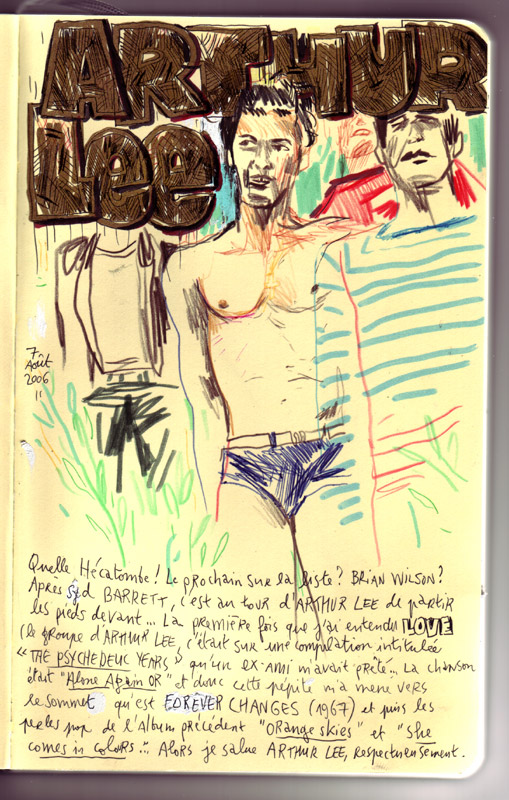 ARTHUR
Lee
7
Août
2006
Quelle Hécatombe! Le prochain sur la liste? BRIAN WILSON?
Après Syd BARRETT, c'est au tour d'ARTHUR LEE de partir
les pieds devant... La première fois que j'ai entendu LOVE
(le groupe d'ARTHUR LEE, c'était sur une compilation intitulée
"THE PSYCHEDELIC YEARS" qu'un ex-ami m'avait prêté... La chanson
était "Alone Again OR" et donc cette pépite m'a mené vers
le sommet qu'est FOREVER CHANGES (1967) et puis les
perles pop de l'Album précédent "ORange skies" et "She
comes in colours"... Alors je salue ARTHUR LEE, respectueusement.